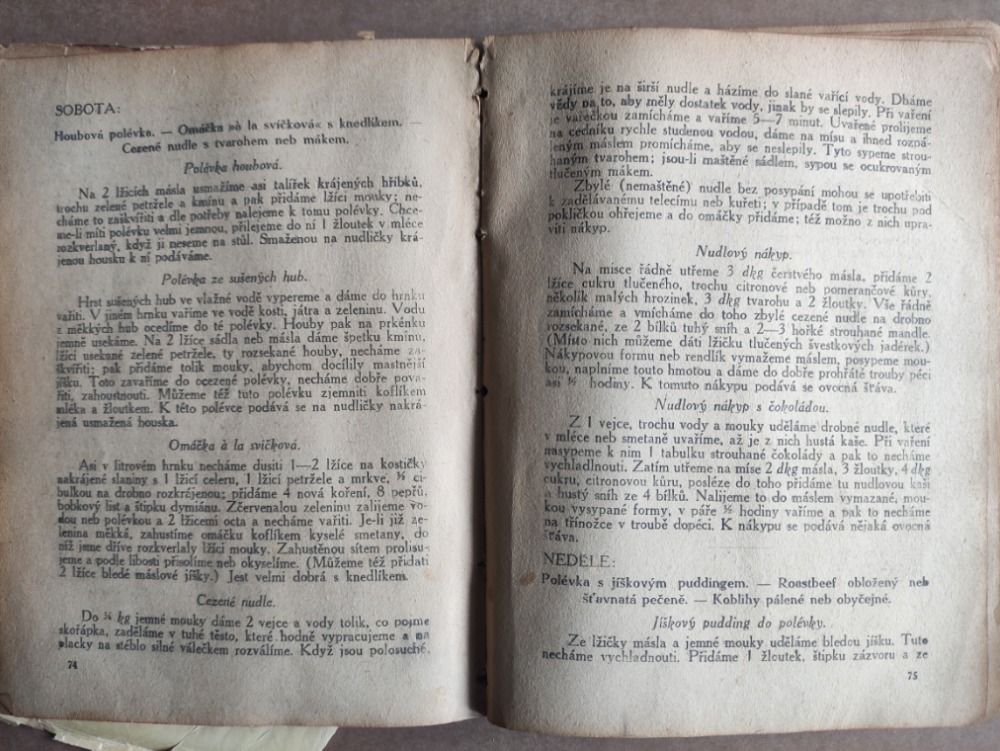 SOBOTA:
Houbová polévka. — Omáčka »à la svíčková« s knedlíkem. —
Cezené nudle s tvarohem neb mákem.
Polévka houbová.
Na 2 lžicích másla usmažíme asi talířek krájených hříbků,
trochu zelené petržele a kmínu a pak přidáme lžíci mouky; ne-
cháme to zaškvířiti a dle potřeby nalejeme k tomu polévky. Chce-
me-li míti polévku velmi jemnou, přilejeme do ní 1 žloutek v mléce
rozkverlaný, když ji neseme na stůl. Smaženou na nudličky krá-
jenou housku k ní podáváme.
Polévka ze sušených hub.
Hrst sušených hub ve vlažné vodě vypereme a dáme do hrnku
vařiti. V jiném hrnku vaříme ve vodě kosti, játra a zeleninu. Vodu
z měkkých hub ocedíme do té polévky. Houby pak na prkénku
jemně usekáme. Na 2 lžíce sádla neb másla dáme špetku kmínu,
lžíci usekané zelené petržele, ty rozsekané houby, necháme za-
škvířiti; pak přidáme tolik mouky, abychom docílily mastnější
jíšku. Toto zavaříme do ocezené polévky, necháme dobře pova-
řiti, zahoustnouti. Můžeme též tuto polévku zjemniti koflíkem
mléka a žloutkem. K této polévce podává se na nudličky nakrá-
jená usmažená houska.
Omáčka à la svíčková.
Asi v litrovém hrnku necháme dusiti 1—2 lžíce na kostičky
nakrájené slaniny s 1 lžící celeru, 1 lžící petržele a mrkve, ½ ci-
bulkou na drobno rozkrájenou; přidáme 4 nová koření, 8 pepřů,
bobkový list a štipku dymiánu. Zčervenalou zeleninu zalijeme vo-
dou neb polévkou a 2 lžicemi octa a necháme vařiti. Je-li již ze-
lenina měkká, zahustíme omáčku koflíkem kyselé smetany, do
níž jsme dříve rozkverlaly lžíci mouky. Zahuštěnou sítem prolisu-
jeme a podle libosti přisolíme neb okyselíme. (Můžeme též přidati
2 lžíce bledé máslové jíšky.) Jest velmi dobrá s knedlíkem.
Cezené nudle.
Do ¼ kg jemné mouky dáme 2 vejce a vody tolik, co pojme
skořápka, zaděláme v tuhé těsto, které hodně vypracujeme a na
placky na stéblo silné válečkem rozválíme. Když jsou polosuché,
74
krájíme je na širší nudle a házíme do slané vařící vody. Dbáme
vědy na to, aby měly dostatek vody, jinak by se slepily. Při vaření
je vařečkou zamícháme a vaříme 5—7 minut. Uvařené prolijeme
na cedníku rychle studenou vodou, dáme na mísu a ihned rozpá-
leným máslem promícháme, aby se neslepily. Tyto sypeme strou-
haným tvarohem; jsou-li maštěné sádlem, sypou se ocukrovaným
tlučeným mákem.
Zbylé (nemaštěné) nudle bez posypání mohou se upotřebiti
k zadělávanému telecímu neb kuřeti; v případě tom je trochu pod
pokličkou ohřejeme a do omáčky přidáme; též možno z nich upra-
viti nákyp.
Nudlový nákyp.
Na misce řádně utřeme 3 dkg čerstvého másla, přidáme 2
lžíce cukru tlučeného, trochu citronové neb pomerančové kůry,
několik malých hrozinek, 3 dkg tvarohu a 2 žloutky. Vše řádně
zamícháme a vmícháme do toho zbylé cezené nudle na drobno
rozsekané, ze 2 bílků tuhý sníh a 2—3 hořké strouhané mandle.
(Místo nich můžeme dáti lžičku tlučených švestkových jadérek.)
Nákypovou formu neb rendlík vymažeme máslem, posypeme mou-
kou, naplníme touto hmotou a dáme do dobře prohřáté trouby péci
asi ½ hodiny. K tomuto nákypu podává se ovocná šťáva.
Nudlový nákyp s čokoládou.
Z 1 vejce, trochu vody a mouky uděláme drobné nudle, které
v mléce neb smetaně uvaříme, až je z nich hustá kaše. Při vaření
nasypeme k nim 1 tabulku strouhané čokolády a pak to necháme
vychladnouti. Zatím utřeme na míse 2 dkg másla, 3 žloutky, 4 dkg
cukru, citronovou kůru, posléze do toho přidáme tu nudlovou kaši
a hustý sníh ze 4 bílků. Nalijeme to do máslem vymazané, mou-
kou vysypané formy, v páře ½ hodiny vaříme a pak to necháme
na třínožce v troubě dopéci. K nákypu se podává nějaká ovocná
šťáva.
NEDĚLE:
Polévka s jíškovým puddingem. — Roastbeef obložený neb
šťavnatá pečeně. — Koblihy pálené neb obyčejné.
Jíškový pudding do polévky.
Ze lžičky másla a jemné mouky uděláme bledou jíšku. Tuto
necháme vychladnouti. Přidáme 1 žloutek, štipku zázvoru a ze
75